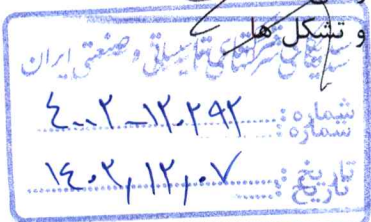 و تشکل ها
سندیکای شرکتهای تاسیساتی و صنعتی ایران
شماره : ۴۰۰۲-۱۲۰۲۹۲
تاریخ : ۱۴۰۳,۱۲,۰۷